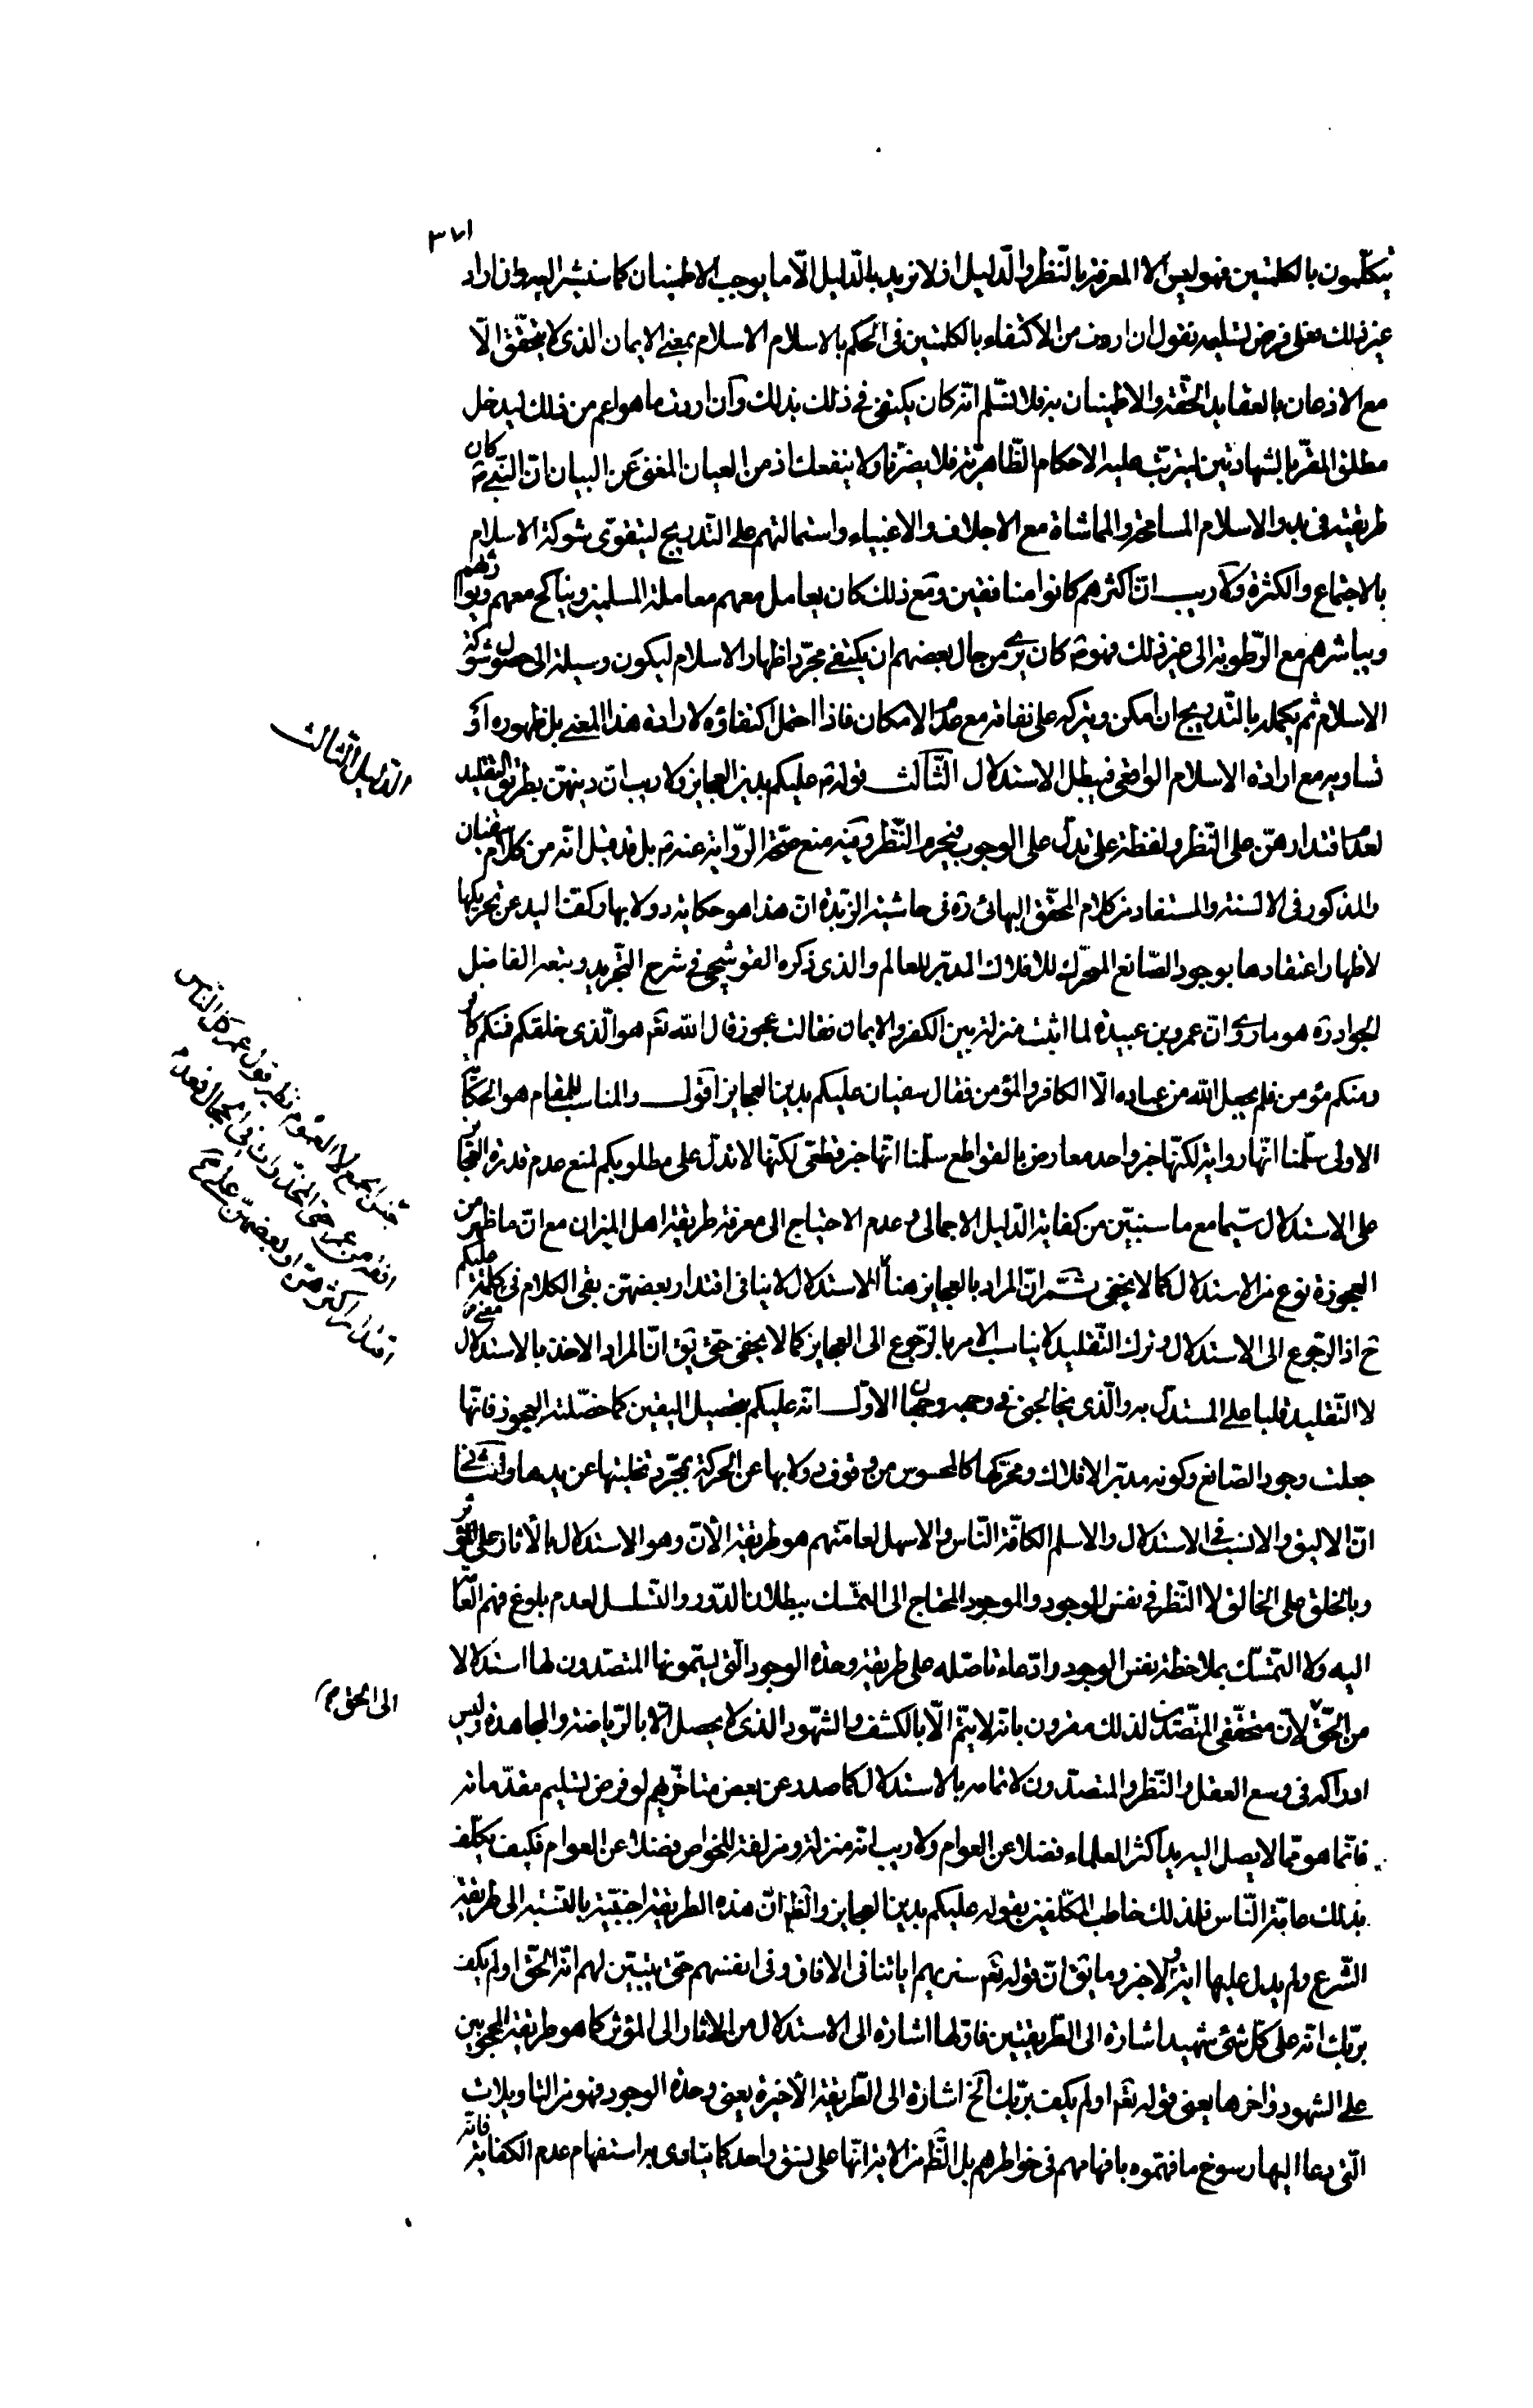 ٣٧١
يتكلّمون بالكلمتين فهو ليس الا المعرفة بالنّظر والدّليل اذ لا نريد بالدّليل الّا ما يوجب الاطمينان كما سنشير اليه وان اراد
غير ذلك فعلى فرض تسليمه نقول ان اردت من الاكتفاء بالكلمتين فى الحكم بالاسلام الاسلام بمعنى الايمان الذى لا يتحقّق الّا
مع الاذعان بالعقايد الحقّة والاطمينان به فلا نسّلم انّه كان يكتفى فى ذلك بذلك وان اردت ما هو اعم من ذلك ليدخل
مطلق المقرّ بالشهادتين ليترتّب عليه الاحكام الظّاهريّة فلا يضرّنا ولا ينفعك اذ من العيان المغنى عن البيان انّ النّبى ص كان
طريقته فى بدو الاسلام المسامحة والمماشاة مع الاجلاف والاغبياء واستمالتهم على التّدريج ليتقوّى شوكة الاسلام
بالاجتماع والكثرة ولا ريب انّ اكثرهم كانوا منافقين ومع ذلك كان يعامل معهم معاملة المسلمين ويناكح معهم ويوارثهم
ويباشرهم مع الرّطوبة الى غير ذلك فهو ص كان يرى من حال بعضهم ان يكتفى بمجرّد اظهار الاسلام ليكون وسيلة الى حصول شوكة
الاسلام ثم يكمله بالتّدريج ان امكن ويتركه على نفاقه مع عدم الامكان فاذا احتمل اكتفاؤه لارادة هذا المعنى بل ظهوره او
تساويه مع ارادة الاسلام الواقعى فيبطل الاستدلال الثّالث قوله ص عليكم بدين العجايز ولا ريب انّ دينهنّ بطريق التّقليد
الدّليل الثّالث
لعدم اقتدارهنّ على النّظر ولفظة على تدلّ على الوجوب فيحرم النّظر وفيه منع صحّة الرّواية عنه ص بل قد قيل انّه من كلام سفيان
والمذكور فى الالسنة والمستفاد من كلام المحقّق البهائى ره فى حاشية الزبدة انّ هذا هو حكاية دولابها وكفّ اليد عن تحريكها
لاظهار اعتقادها بوجود الصّانع المحرّك للافلاك المدبّر للعالم والذى ذكره القوشچى فى شرح التّجريد وتبعه الفاضل
الجواد ره هو ما روى انّ عمرو بن عبيدة لما اثبت منزلة بين الكفر والايمان فقالت عجوز قال الله تعم هو الّذى خلقكم فمنكم كافر
ومنكم مؤمن فلم يجعل الله من عباده الّا الكافر والمؤمن فقال سفيان عليكم بدين العجايز اقول والمناسب للمقام هو الحكاية
الاولى سلّمنا انّها رواية لكنّها خبر واحد معارض بالقواطع سلّمنا انّها خبر قطعى لكنّها لا تدلّ على مطلوبكم لمنع عدم قدرة العجايز
على الاستدلال سيّما مع ما سنبيّن من كفاية الدّليل الاجمالى وعدم الاحتياج الى معرفة طريقة اهل الميزان مع انّ ما ظهر من
العجوزة نوع من الاستدلال كما لا يخفى ثمّ انّ المراد بالعجايز هنا الاستدلال لا ينافى اقتدار بعضهنّ بقى الكلام فى كلمة عليكم
ح اذ الرّجوع الى الاستدلال وترك التّقليد لا يناسب الامر بالرّجوع الى العجايز كما لا يخفى حتّى يق انّ المراد الاخذ بالاستدلال
لا التّقليد فلبا على المستدلّ به والّذى يخالجنى فى وجهه وجهان الاوّل انّه عليكم بتحصيل اليقين كما حصّلته العجوز فانّها
جعلت وجود الصّانع وكونه مدبّر الافلاك ومحرّكها كالمحسوس من وقوف دولابها عن الحركة بمجرّد تخليتها عن يدها والثّانى
انّ الاليق والانسب فى الاستدلال والاسلم لكافّة النّاس والاسهل لعامّتهم هو طريقة الانّ وهو الاستدلال بالاثار على المؤثّر
وبالخلق على الخالق لا النّظر فى نفس الوجود والموجود المحتاج الى التمسّك ببطلان الدّور والتّسلسل لعدم بلوغ فهم العامّة
اليه ولا التمسّك بملاحظة نفس الوجود وادّعاء تاصّله على طريقة وحدة الوجود الّتى يسمّونها المتصدّون لها استدلالا
من الحقّ لانّ محقّقى المتصدّين لذلك مقرون بانّه لا يتمّ الّا بالكشف والشّهود الذى لا يحصل الّا بالرّياضة والمجاهدة وليس
الى الحق م
ادراكه فى وسع العقل والنّظر والمتصدّون لاتمامه بالاستدلال كما صدر عن بعض متاخّريهم لو فرض تسليم مقدّماته
فانّما هو ممّا لا يصل اليه يد اكثر العلماء فضلا عن العوام ولا ريب انّه منزلة ومزلقة للخواص فضلا عن العوام فكيف يكلّف
بذلك عامّة النّاس فلذلك خاطب المكلّفين بقوله عليكم بدين العجايز والظّم انّ هذه الطريقة اجنبيّة بالنّسبة الى طريقة
الشّرع ولم يدلّ عليها اية ولا خبر وما يق انّ قوله تعم سنريهم اياتنا فى الافاق وفى انفسهم حتّى يتبيّن لهم انّه الحقّ اولم يكف
بربّك انّه على كلّ شئ شهيد اشارة الى الطّريقتين فاوّلها اشارة الى الاستدلال من الاثار الى المؤثّر كما هو طريقة المحجوبين
على الشهود واخرها يعنى قوله تعم اولم يكف بربّك الخ اشارة الى الطّريقة الاخيرة يعنى وحدة الوجود فهو من التاويلات
الّتى دعا اليها رسوخ ما فهموه بافهامهم فى خواطرهم بل الظّم من الاية انّها على نسق واحد كما يتادى به استفهام عدم الكفاية فانّه
جنس الجمع لا العموم نظير قول عمر كل الناس
افقه من عمر حتى المخدّرات فى الحجال فعدم
اقتدار اكثرهنّ او بعضهنّ على م